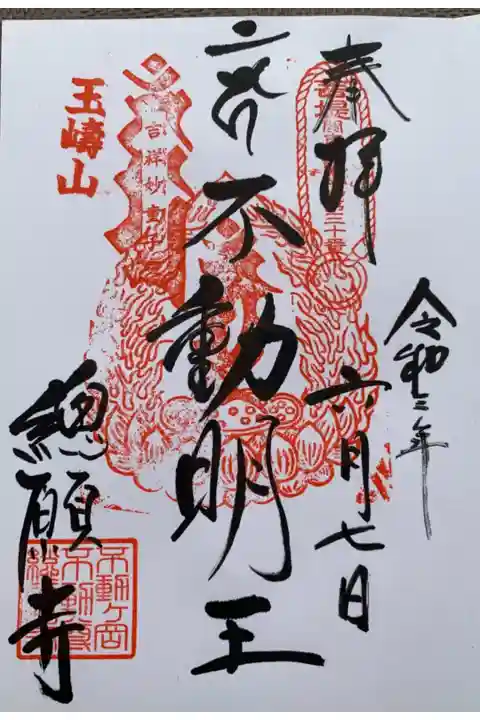 奉拝
令和三年
六月七日
不動明王
玉嶹山
總願寺
吉祥妙童子
三十番
不動ヶ岡
不動尊
總願寺